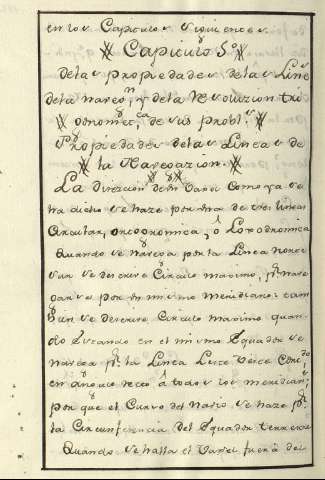 en los Capitulos siguientes.
Capitulo 5º
De las propiedades de las Line
de la naveg.ⁿ y de la Resoluzion tri
gonomet.ca de sus probl.s
Propiedades de las Lineas de
la Navegazion.
La direccion de un Vaxel como ya se
ha dicho se haze por una de tres lineas
Circular, o Loxodromica
Quando se navega por la Linea Norte
Sur se descrive Circulo maximo, p.r nave
garse por un mismo meridiano: tam
bien se descrive Circulo maximo quan
do estando en el mismo Equador se
navega p.r la Linea Leste Oeste
en angulo recto a todos los meridian.s
por que el Curso del Navio se haze p.r
la Circunferencia del Equador terrestre
Quando se halla el Vaxel fuera del